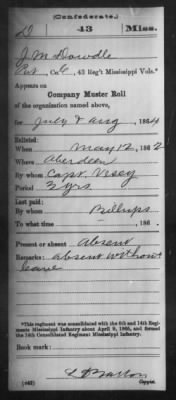 (Confederate.)
D 43 Miss.
J. M. Dowdle
Pvt, Co. C, 43 Reg't Mississippi Vols.*
Appears on
Company Muster Roll
of the organization named above,
for July & Aug, 1864
Enlisted:
When May 12, 1862
Where Aberdeen
By whom Capt. Vesey
Period 3 yrs
Last paid:
By whom Billups
To what time , 186 .
Present or absent Absent
Remarks: absent without
leave
*This regiment was consolidated with the 6th and 14th Regiments Mississippi Infantry about April 9, 1865, and formed the 14th Consolidated Regiment Mississippi Infantry.
Book mark:
(642)
Copyist.